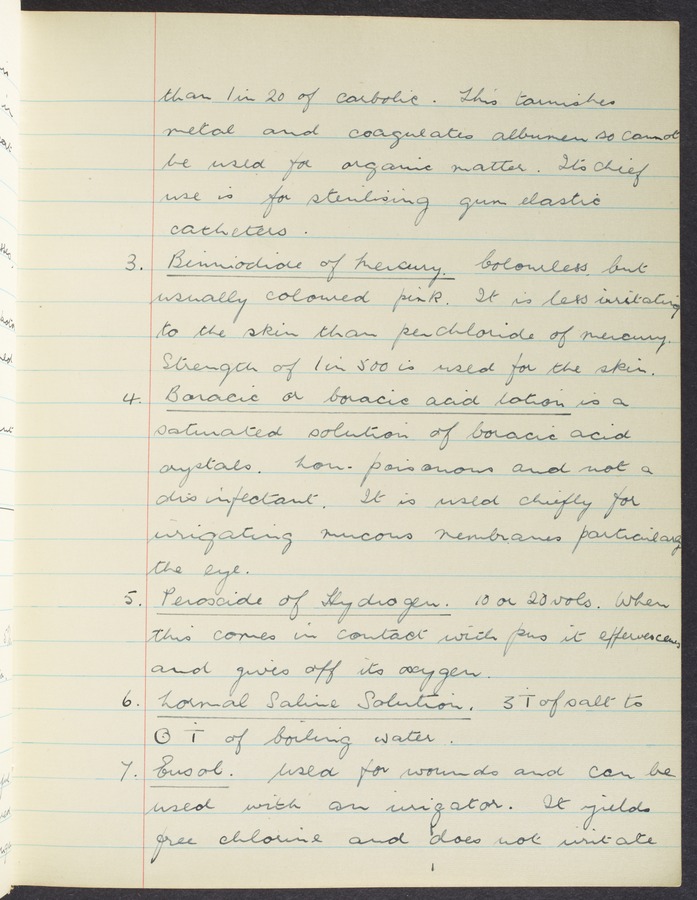 than 1 in 20 of carbolic. This tarnishes
metal and coagulates albumen so cannot
be used for organic matter. Its chief
use is for sterilising gum elastic
catheters.
3. Binniodide of Mercury. Colourless, but
usually coloured pink. It is less irritating
to the skin than perchloride of mercury.
Strength of 1 in 500 is used for the skin.
4. Boracic or boracic acid lotion is a
saturated solution of boracic acid
crystals. Non-poisonous and not a
disinfectant. It is used chiefly for
irrigating mucous membranes particularly
the eye.
5. Peroxide of Hydrogen. 10 or 20 vols. When
this comes in contact with pus it effervesces
and gives off its oxygen.
6. Normal Saline Solution. of salt to
of boiling water.
7. Eusol. Used for wounds and can be
used with an irrigator. It yields
free chlorine and does not irritate